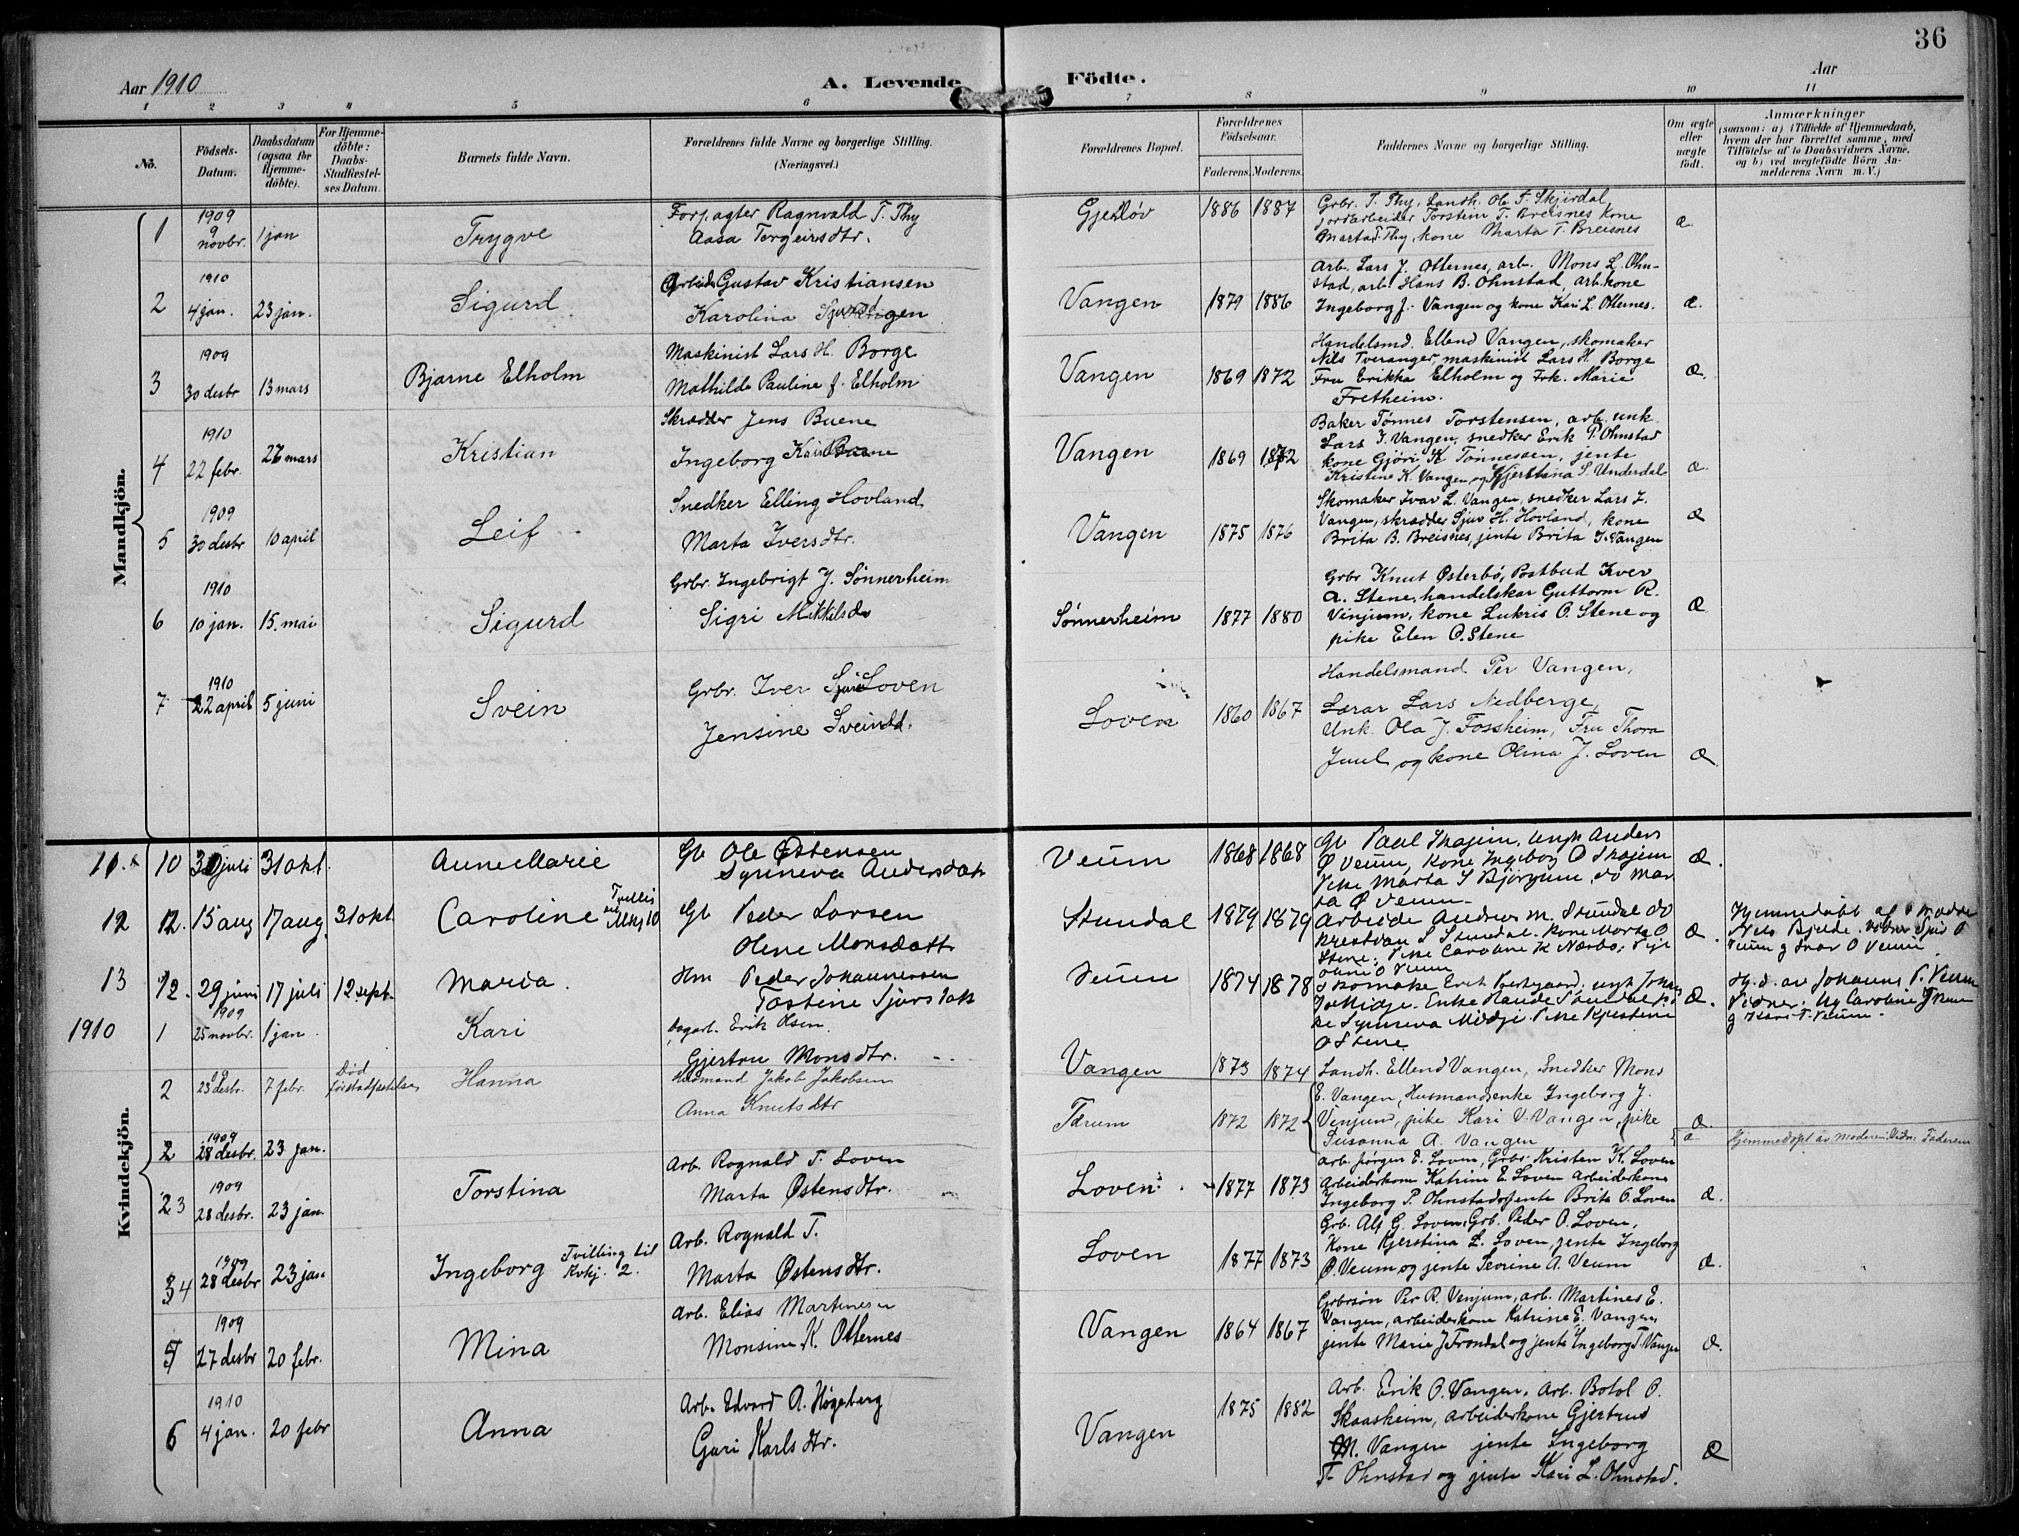 36
Aar 1910
A. Levende Födte.
Aar
1 2 3 4 5 6 7 8 9 10 11
No.
Födsels-Datum.
Daabsdatum (ogsaa for Hjemme-döbte).
For Hjemme-döbte: Daabs-Stadfæstel-ses Datum.
Barnets fulde Navn.
Forældrenes fulde Navne og borgerlige Stilling. (Næringsvei.)
Forældrenes Bopæl.
Forældrenes Födselsaar.
Faderens. Moderens.
Faddernes Navne og borgerlige Stilling.
Om ægte eller uægte födt.
Anmærkninger
(saasom: a) i Tilfælde af Hjemmedaab, hvem der har forrettet samme, med Tilföielse af to Daabsvidners Navne, og b) ved uægtefödte Börn An-melderens Navn m. V.)
Mandkjön.
1 1909 9 novbr. 1 jan Trygve
Forpagter Ragnvald T. Thy
Aasa Torgeirsdtr.
Gjesløv 1886 1887
Grbr. T. Thy, Landh. Ole T. Skjerdal,
jordarbeider Torstein T. Breisnes kone
Marta T. Thy, kone Marta T. Breisnes
æ.
2 1910 4 jan. 23 jan. Sigurd
Arbeid. Gustav Kristiansen
Karolina
Vangen 1879 1886
Arb. Lars J. Otternes, arb. Mons L. Ohn-
stad, arb. Hans B. Ohnstad, arb. kone
Ingeborg J. Vangen og kone Kari L. Otternes.
æ.
3 1909 30 desbr 13 mars Bjarne Elholm
Maskinist Lars H. Borge
Mathilde Pauline f. Elholm
Vangen 1869 1872
Handelsmd. Ellend Vangen, skomaker
Nils Tveranger, maskinist Lars H. Borge
Fru Erikka Elholm og Frk. Marie
Fretheim.
æ.
4 1910 22 febr. 27 mars Kristian
Skrædder Jens Buene
Ingeborg
Vangen 1869 1872
Baker Tønnes Torstensen, arb. unk.
Lars J. Vangen, snedker Erik P. Ohnstad
kone Gjøri K Tønnessen, jente
Kristine K. Vangen og Kjerstina S. Underdal
æ.
5 1909 30 desbr 10 april Leif
Snedker Elling Hovland
Marta Iversdtr.
Vangen 1875 1876
Skomaker Ivar L. Vangen, snedker Lars J.
Vangen, skrædder Sjur H. Hovland, kone
Brita B. Breisnes, jente Brita J. Vangen
æ
6 1910 10 jan. 15. mai Sigurd
Grbr. Ingebrigt J. Sønnerheim
Sigri Mikkelsdr
Sønnerheim 1877 1880
Grbr Knut Østerbø, Postbud Iver
A. Stene, handelskar Guttorm R.
Vinjum, kone Lukris O. Stene og
pike Elen O. Stene
æ
7 1910 22 april 5 juni Svein
Grbr. Iver Loven
Jensine Sveinsd.
Loven 1860 1867
Handelsmand Per Vangen,
Lærar Lars Nedberge,
Unk. Ola J. Fossheim, Fru Thora
Juul og kone Olina J. Loven
æ
Kvindekjön.
11. 10 juli 31 okt. Anne Marie
Gb Ole Østensen
Synneva Andersdatt
Veum 1868 1868
Gb Paul Skajem, Ungk Anders
Ø Veum, Kone Ingebor O Skajem
Pike Marta S Bjørgum, do Mar
ta Ø Veum
æ.
12 12. 15 aug 17 aug. 31 okt. Caroline
Gb Peder Larsen
Olene Monsdatt
Stundal 1879 1879
Arbeide Andres M. Stundal do
Kristian S Stundal. Kone Marta O
Stene. Pike Caroline K Nærbø, Pige
O Veum
æ.
Hjemmedøbt af
Nils Bjelde. Vidner Sjur O
Veum g Ivar O Veum
13 12. 29 juni 17 juli 12 sept. Maria.
Hm Peder Johannersen
Tostine Sjursdatt
Veum 1874 1878
æ.
Hj.d. av Johannes P. Veum
Vidner: Ug Caroline J Veum
g Kari P. Veum.
1910 1 1909 25 novbr. 1 jan. Kari
Erik Olsen
Gjertru Monsdtr.
Vangen 1873 1874
Landh. Ellend Vangen, Snedker Mons
E. Vangen, Husmandsenke Ingeborg J.
Venjum, pike Kari V. Vangen, pike
Susanna A. Vangen
æ.
2 09 23 desbr. 7 febr. Død før stadfæstelsen Hanna
Husmand Jakob Jakobsen
Anna Knutsdtr
Tærum 1872 1872
æ Hjemmedøpt av moderen. Vidne: Faderen
2 1909 28 desbr. 23 jan.
23 1909 28 desbr. 23 jan. Torstina
Arb. Rognald T. Loven
Marta Østensdtr.
Loven 1877 1873
Arb. Jørgen E. Loven, Grbr Kristen K. Loven
Arbeiderkone Katrine E. Loven Arbeiderkone
Ingeborg P. Ohnstad og jente Brita O. Loven
æ.
34 1909 28 desbr 23 jan Ingeborg Tvilling til Kvkj. 2.
Arb. Rognald T.
Marta Østensdtr.
Loven 1877 1873
Grb. Alf G. Loven, Grb. Peder O. Loven,
Kone Kjerstina L. Loven, jente Ingeborg
O. Veum og jente Severine A. Veum
æ.
5 1909 27 desbr 20 febr. Mina
Arb. Elias Martinesen
Monsine K. Otternes
Vangen 1864 1867
Grbrsøn Per R. Venjum, arb. Martines E.
Vangen, arbeiderkone Katrine E. Vangen
jente Marie J. Frondal og jente Ingeborg T. Vangen
æ.
6 1910 4 jan. 20 febr Anna
Arb. Edvard A. Høgeberg
Guri Karlsdtr.
Vangen 1875 1882
Arb. Erik O. Vangen, Arb. Botol O.
Skaasheim, arbeiderkone Gjertrud
M. Vangen jente Ingeborg
T. Ohnstad og jente Kari L. Ohnstad.
æ